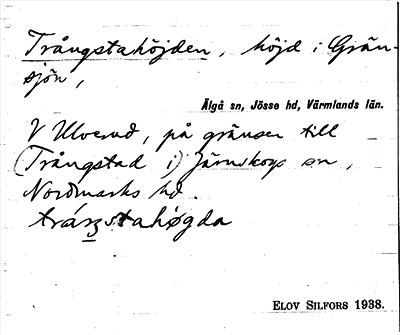 Trångstahöjden, höjd i Grän-
sjön,
Älgå sn, Jösse hd, Värmlands län.
V Ulvesud, på gränsen till
(Trångstad i) Järnskogs sn,
Nordmarks hd.
tráŋstahøgda
ELOV SILFORS 1938.